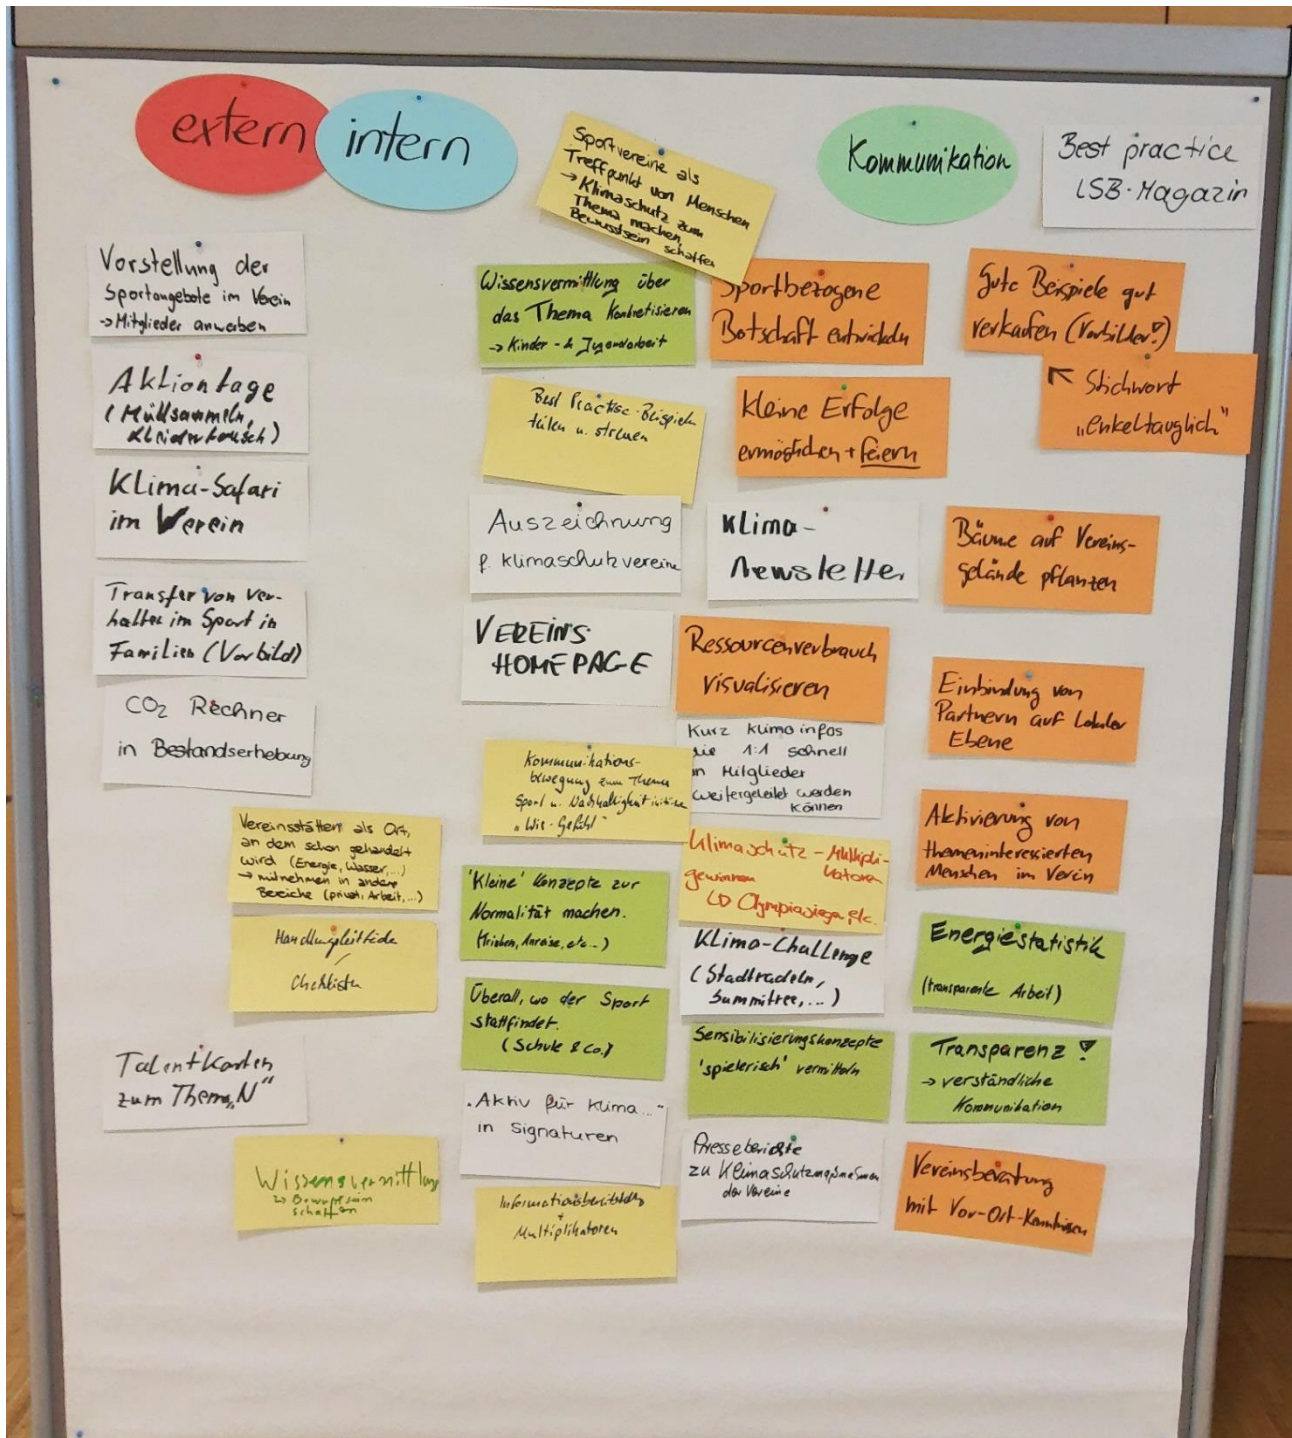 extern
intern
Sportvereine als
Treffpunkt von Menschen
→ Klimaschutz zum
Thema machen,
Bewusstsein schaffen
Kommunikation
Best practice
LSB-Magazin
Vorstellung der
Sportangebote im Verein
→ Mitglieder anwerben
Aktiontage
(Müllsammeln,
Kleidertausch)
Klima-Safari
im Verein
Transfer von Ver-
halten im Sport in
Familien (Vorbild)
CO2 Rechner
in Bestandserhebung
Vereinsstätten als Ort,
an dem schon gehandelt
wird (Energie, Wasser, ...)
→ mitnehmen in andere
Bereiche (privat, Arbeit, ...)
Handlungsleitfäde
/
Checklisten
Talentkarten
zum Thema „N"
Wissensvermittlung
→ Bewusstsein
schaffen
Wissensvermittlung über
das Thema konkretisieren
→ Kinder- & Jugendarbeit
Best Practise-Beispiele
teilen u. streuen
Auszeichnung
f. Klimaschutzvereine
VEREINS-
HOMEPAGE
Kommunikations-
bewegung zum Thema
Sport u. Nachhaltigkeit
„Wir-Gefühl"
'Kleine' Konzepte zur
Normalität machen.
(Trinken, Anreise, etc...)
Überall, wo der Sport
stattfindet.
(Schule & Co.)
„Aktiv für Klima..."
in Signaturen
Informationsbereitstellg
+
Multiplikatoren
Sportbezogene
Botschaft entwickeln
Kleine Erfolge
ermöglichen + feiern
Klima-
newsletter
Ressourcenverbrauch
visualisieren
Kurz Klimainfos
die 1:1 schnell
an Mitglieder
weitergeleitet werden
können
Klimaschutz-Multipli-
katoren
gewinnen
↳ Olympiasieger, etc.
Klima-Challenge
(Stadtradeln,
Summitree, ...)
Sensibilisierungskonzepte
'spielerisch' vermitteln
Presseberichte
zu Klimaschutzmaßnahmen
der Vereine
Gute Beispiele gut
verkaufen (Vorbilder!)
↖ Stichwort
„enkeltauglich"
Bäume auf Vereins-
gelände pflanzen
Einbindung von
Partnern auf lokaler
Ebene
Aktivierung von
themeninteressierten
Menschen im Verein
Energiestatistik
(transparente Arbeit)
Transparenz!
→ verständliche
Kommunikation
Vereinsberatung
mit Vor-Ort-Kenntnissen